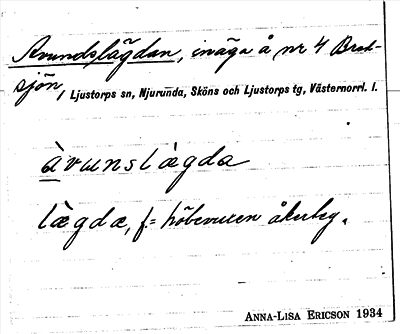 Avundslägdan, inäga å nr 4 Bred-
sjön, Ljustorps sn, Njurunda, Sköns och Ljustorps tg, Västernorrl. l.
àvunslägda
lägda, f. = höbevuxen åkerteg.
ANNA-LISA ERICSON 1934